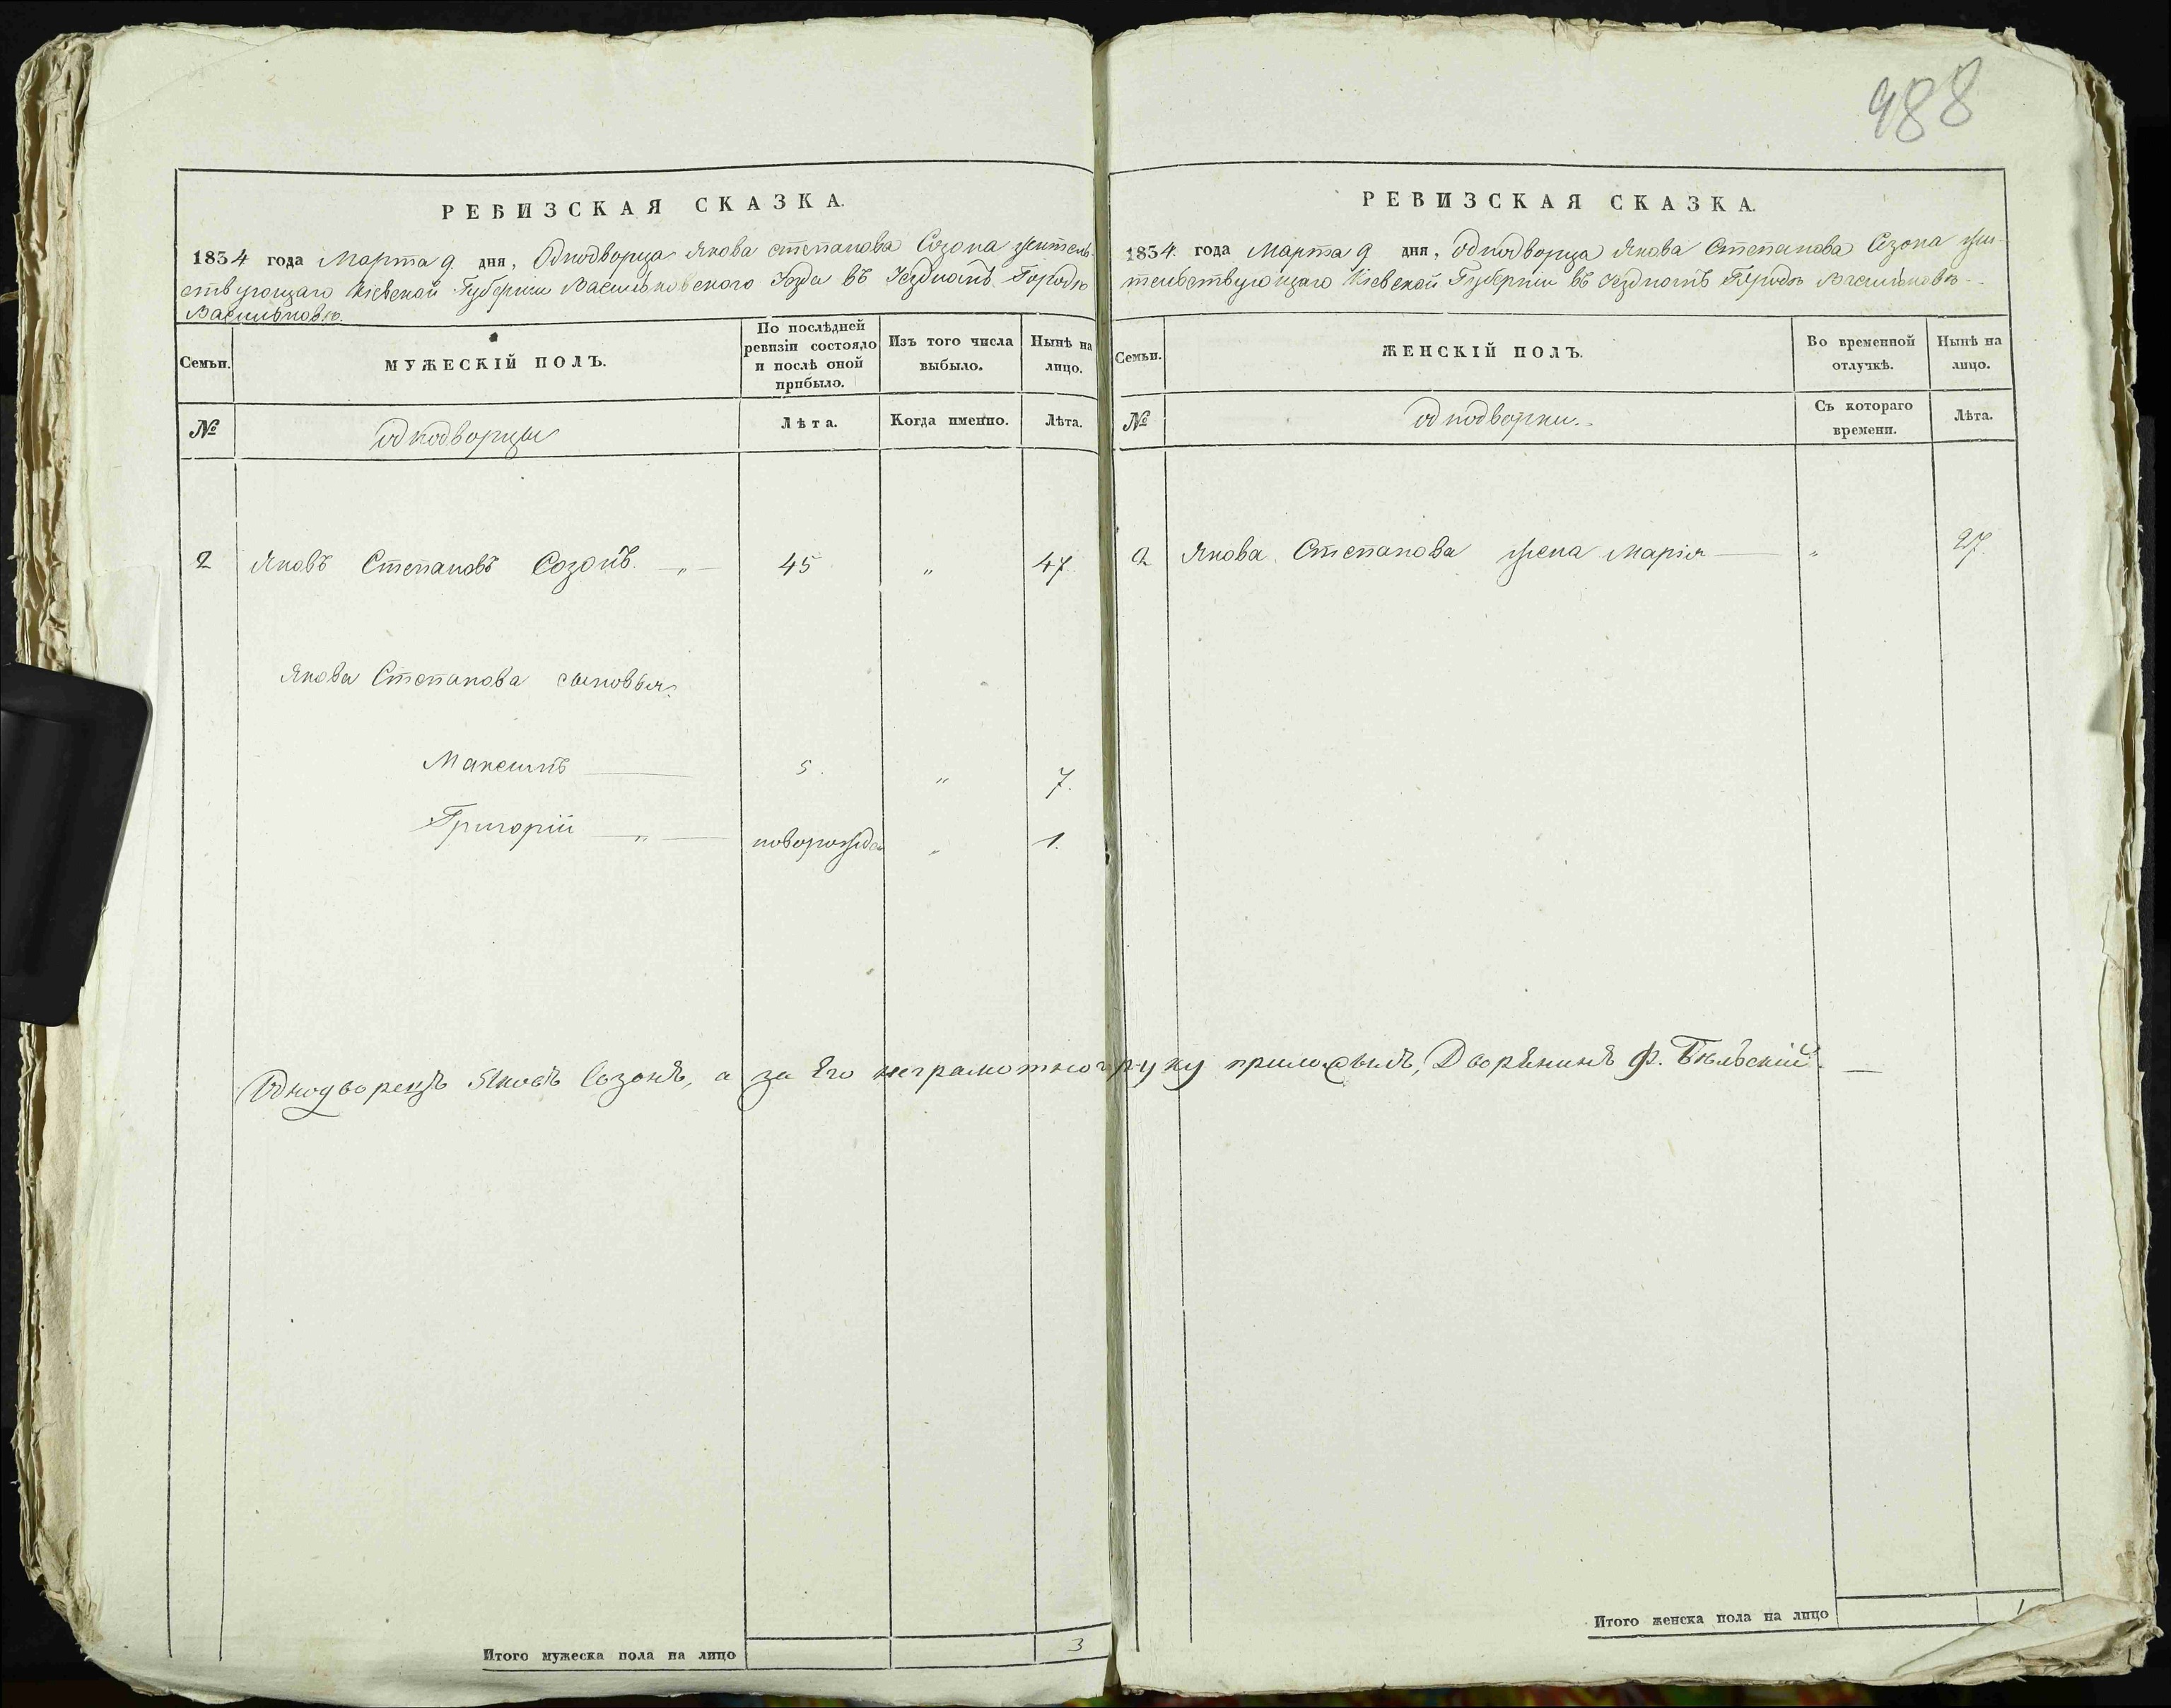 988
РЕВИЗСКАЯ СКАЗКА.
1834 года Марта 9 дня, Однодворца Якова Степанова Созона житель-
ствующаго Кіевской Губерніи Васильковского Уезда въ Уездномъ Городѣ
Васильковѣ.
Семьи.
МУЖЕСКІЙ ПОЛЪ.
По послѣдней ревизіи состояло и послѣ оной прибыло.
Изъ того числа выбыло.
Нынѣ на лицо.
№
однодворцы
Лѣта.
Когда именно.
Лѣта.
2 Яковъ Степановъ Созонъ. — „ — 45 „ 47
Якова Степанова сыновья:
Максимъ — 5. „ 7.
Григорій — „ — новорожден „ 1.
Однодворецъ Яковъ Созонъ, а за Его неграмотного руку приложилъ, Дворянинъ Ф. Бѣльскій. —
Итого мужеска пола на лицо 3
РЕВИЗСКАЯ СКАЗКА.
1834 года Марта 9 дня, Однодворца Якова Степанова Созона жи-
тельствующаго Кіевской Губерніи въ Уездномъ Городѣ Васильковѣ.
Семьи.
ЖЕНСКІЙ ПОЛЪ.
Во временной отлучкѣ.
Нынѣ на лицо.
№
однодворки.
Съ котораго времени.
Лѣта.
2 Якова Степанова жена Марія — „ 27.
Итого женска пола на лицо 1